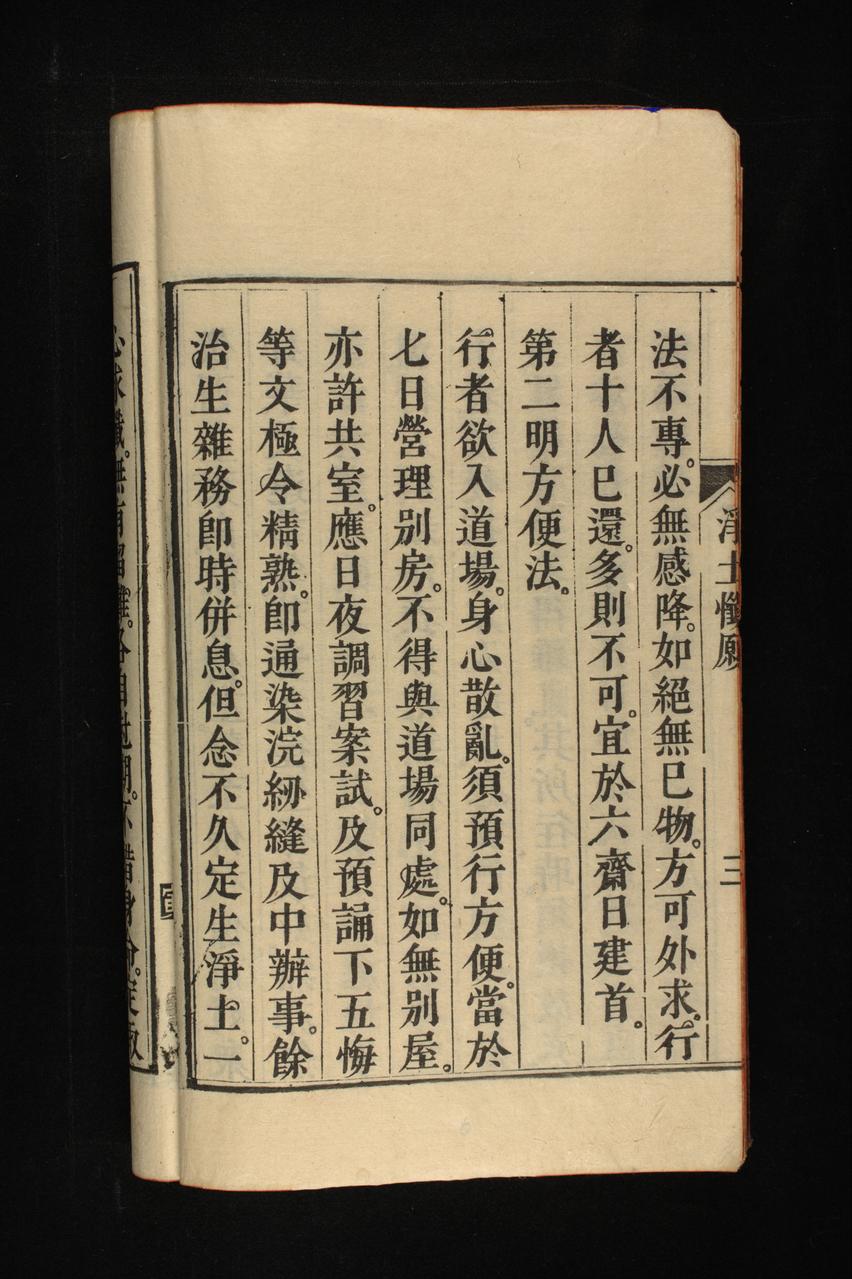 淨土懺願
三
法不專。必無感降。如絕無巳物。方可外求。行
者十人巳還。多則不可。宜於六齋日建首。
第二明方便法。
行者欲入道場。身心散亂。須預行方便。當於
七日營理別房。不得與道場同處。如無別屋。
亦許共室。應日夜調習案試。及預誦下五悔
等文極令精熟。卽通染浣紉縫及中辦事。餘
治生雜務卽時併息。但念不久定生淨土。一